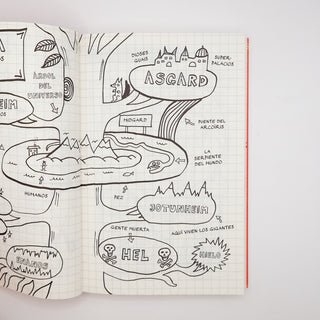 A
ÁRBOL
DEL
UNIVERSO
EIM
HUMANOS
ENANOS
DIOSES
GUAIS
SUPER-
PALACIOS
ASGARD
MIDGARD
PUENTE DEL
ARCOÍRIS
LA
SERPIENTE
DEL MUNDO
PEZ
JOTUNHEIM
AQUÍ VIVEN LOS GIGANTES
GENTE MUERTA
HEL
HIELO